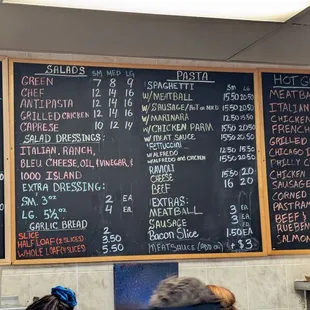 SALADS SM MED LG
GREEN 7 8 9
CHEF 12 14 16
ANTIPASTA 12 14 16
GRILLED CHICKEN 12 14 16
CAPRESE 10 12 14
SALAD DRESSINGS:
ITALIAN, RANCH,
BLEU CHEESE, OIL, VINEGAR, &
1000 ISLAND
EXTRA DRESSING:
SM. 3/4 2 EA
LG. 5 1/2 4 EA
GARLIC BREAD
SLICE 2
HALF LOAF (2 SLICES) 3.50
WHOLE LOAF (4 SLICES) 5.50
PASTA
SPAGHETTI SM LG
W/ MEATBALL 15.50 20.50
W/ SAUSAGE
W/ MARINARA
W/ CHICKEN PARM
W/ MEAT SAUCE
FETTUCCINI
W/ ALFREDO
ALFREDO AND CHICKEN
RAVIOLI
CHEESE
BEEF 16 20
EXTRAS:
MEATBALL 3 EA
SAUSAGE 3 EA
BACON SLICE 1.50 EA
MEATSAUCE + $3
HOT
MEATBA
ITALIA
CHICKEN
FRENCH
GRILLED
CHICAGO
PHILLY C
CHICKEN
SAUSAG
CORNED
PASTRAM
BEEF &
RUEBEN
SALMON